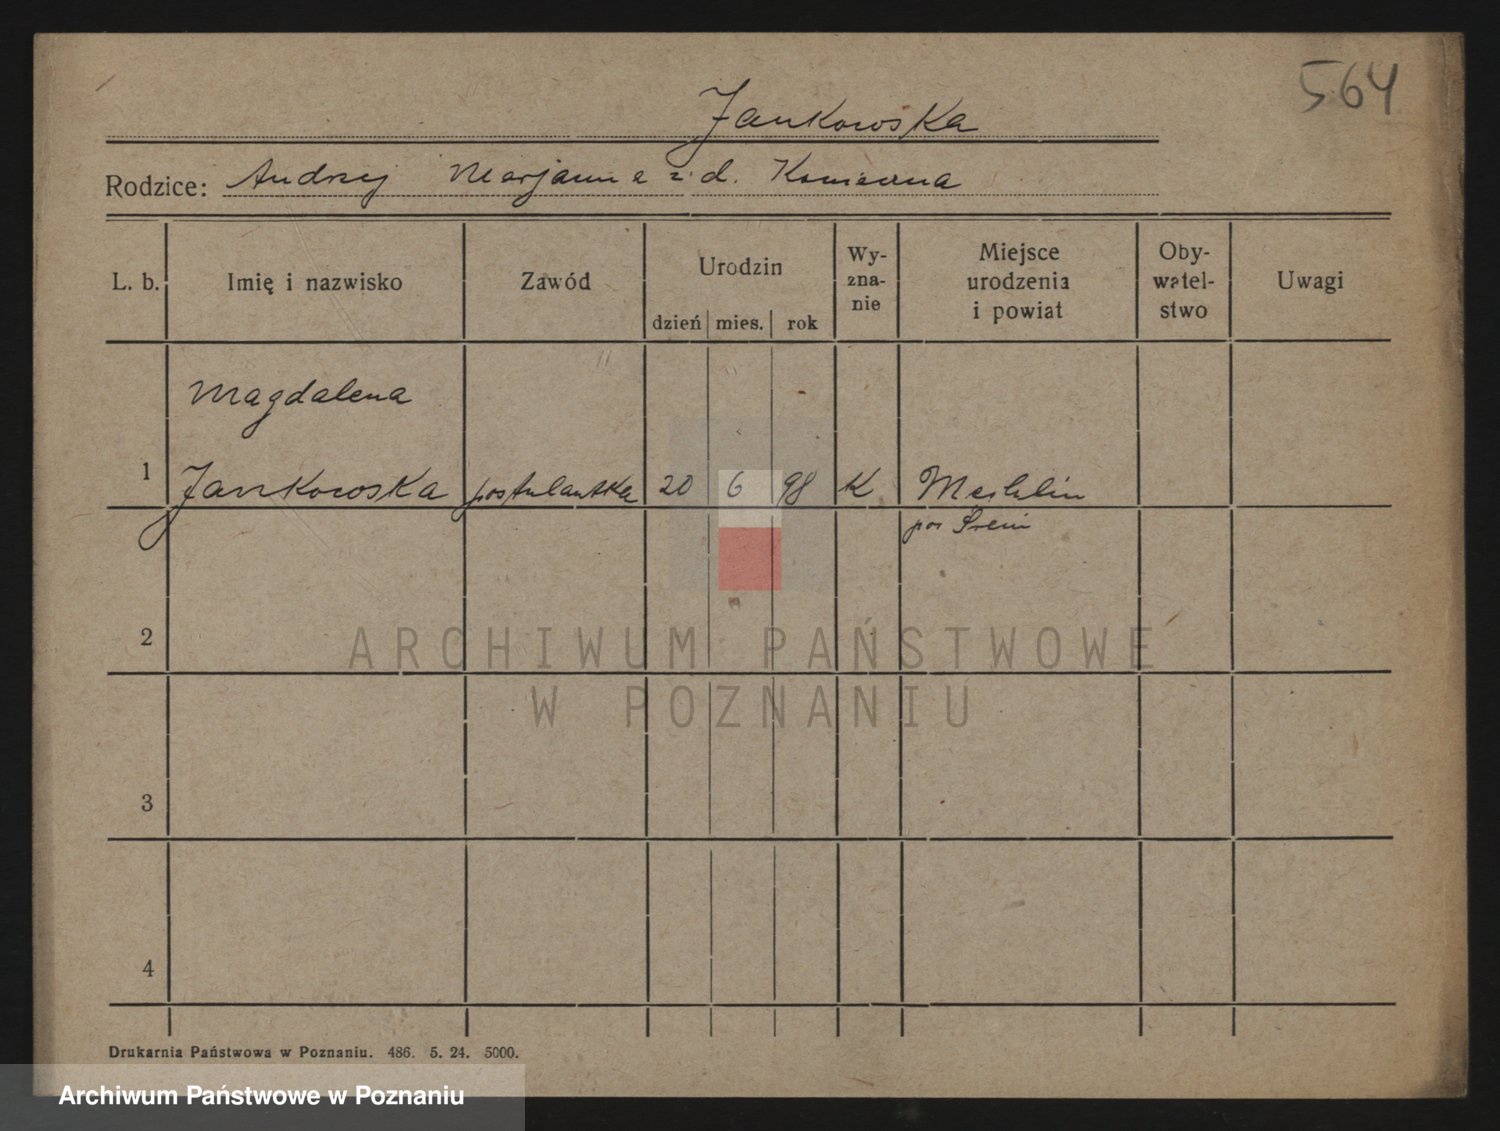 564
Jankowska
Rodzice: Andrzej Marjanna z d.
L. b. Imię i nazwisko Zawód Urodzin Wy-zna-nie Miejsce urodzenia i powiat Oby-watel-stwo Uwagi
dzień mies. rok
Magdalena
1 Jankowska postulantka 20 6 98 K Mechlin
pow Śrem
2
ARCHIWUM PAŃSTWOWE
W POZNANIU
3
4
Drukarnia Państwowa w Poznaniu. 486. 5. 24. 5000.
Archiwum Państwowe w Poznaniu